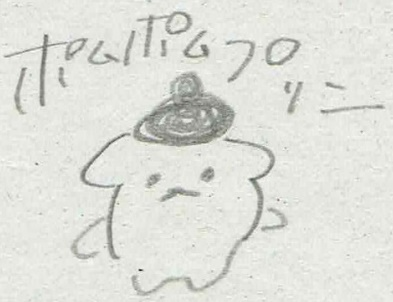 ポムポムプ
リニ